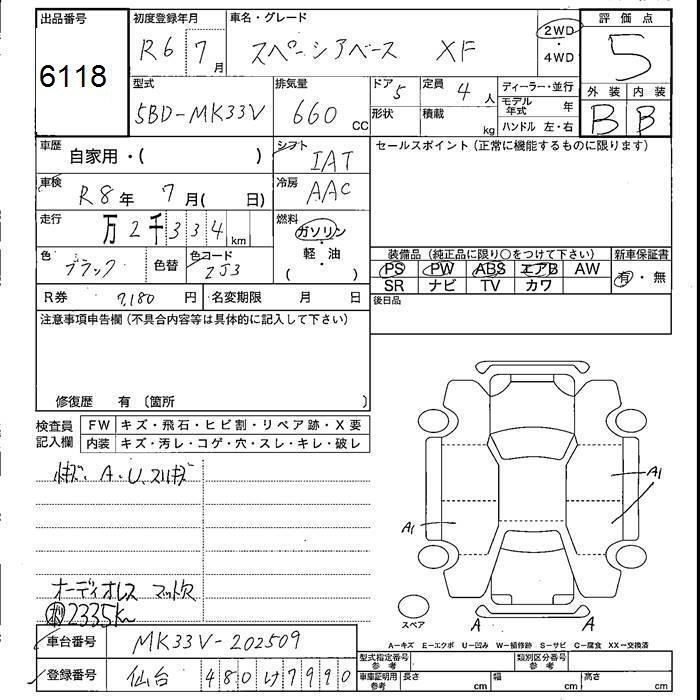 出品番号
6118
初度登録年月
R6 7月
車名・グレード
スペーシアベース XF
2WD
・
4WD
評価点
5
外装 内装
B B
型式
5BD-MK33V
排気量
660 CC
ドア
5
形状
定員
4 人
積載
kg
ディーラー・並行
モデル年式 年
ハンドル 左・右
車歴
自家用・( )
シフト
IAT
車検
R8年 7月( 日)
冷房
AAC
走行
万2千334km
燃料
ガソリン
・
軽・油
( )
色
ブラック
色替
色コード
ZJ3
R券 7,180 円
名変期限 月 日
セールスポイント(正常に機能するものに限ります)
装備品(純正品に限り○をつけて下さい)
PS PW ABS エアB AW
SR ナビ TV カワ
新車保証書
有・無
後日品
注意事項申告欄(不具合内容等は具体的に記入して下さい)
修復歴 有〔箇所 〕
検査員記入欄
FW キズ・飛石・ヒビ割・リペア跡・X要
内装 キズ・汚レ・コゲ・穴・スレ・キレ・破レ
A・U、スリキズ
オーディオレス マット欠
2335km
A1
A1
スペア
A A
A-キズ E-エクボ U-凹み W-補修跡 S-サビ C-腐食 XX-交換済
車台番号 MK33V-202509
登録番号 仙台 480 け 7990
型式指定番号 参考
類別区分番号 参考
車庫証明用 参考
長さ cm
幅 cm
高さ cm